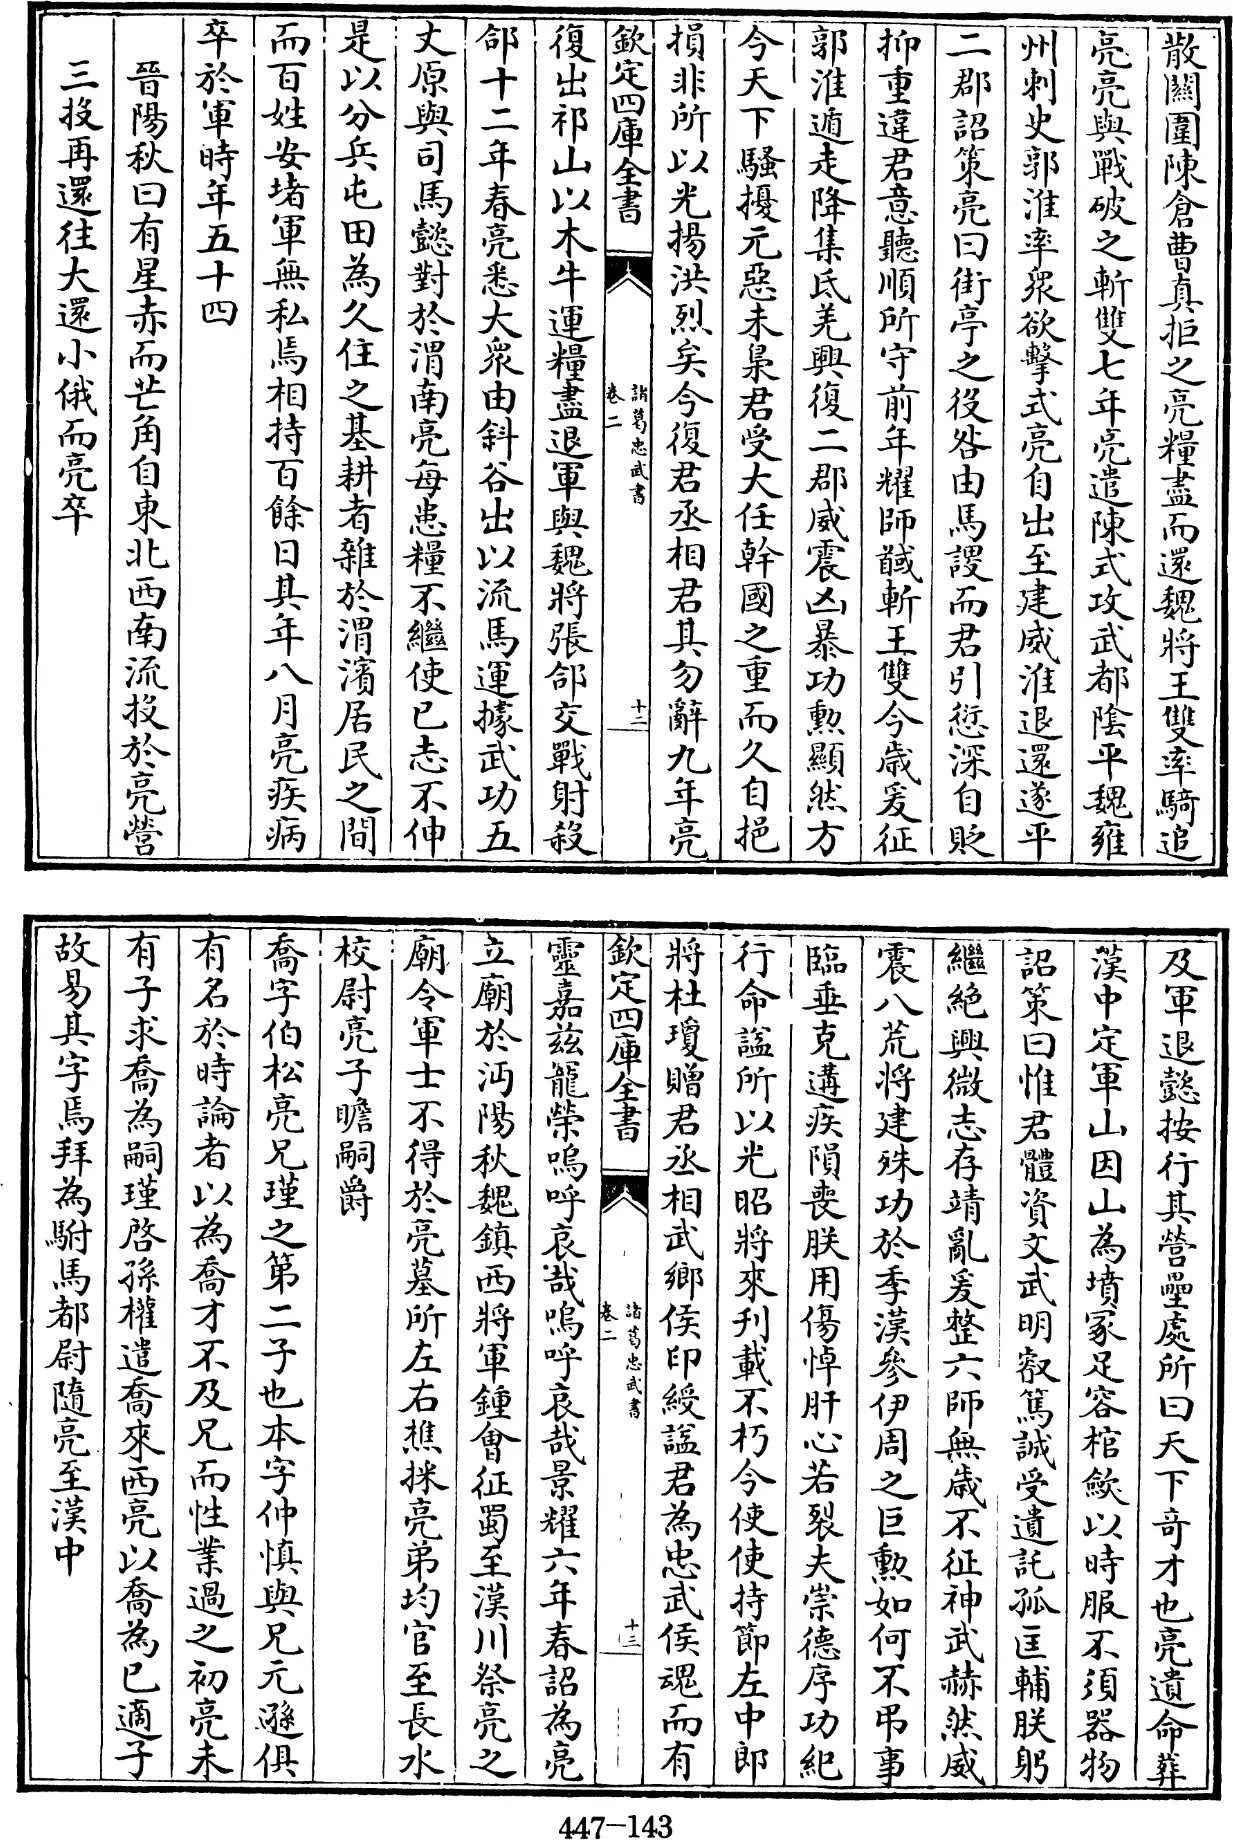 散關圍陳倉曹真拒之亮糧盡而還魏將王雙率騎追
亮亮與戰破之斬雙七年亮遣陳式攻武都陰平魏雍
州刺史郭淮率衆欲擊式亮自出至建威淮退還遂平
二郡詔策亮曰街亭之役咎由馬謖而君引愆深自貶
抑重違君意聽順所守前年耀師馘斬王雙今歲爰征
郭淮遁走降集氐羌興復二郡威震凶暴功勲顯然方
今天下騷擾元惡未梟君受大任幹國之重而久自挹
損非所以光揚洪烈矣今復君丞相君其勿辭九年亮
欽定四庫全書
諸葛忠武書
卷二
十二
復出祁山以木牛運糧盡退軍與魏將張郃交戰射殺
郃十二年春亮悉大衆由斜谷出以流馬運據武功五
丈原與司馬懿對於渭南亮每患糧不繼使已志不伸
是以分兵屯田為久住之基耕者雜於渭濱居民之間
而百姓安堵軍無私焉相持百餘日其年八月亮疾病
卒於軍時年五十四
晉陽秋曰有星赤而芒角自東北西南流投於亮營
三投再還往大還小俄而亮卒
及軍退懿按行其營壘處所曰天下奇才也亮遺命葬
漢中定軍山因山為墳冢足容棺歛以時服不須器物
詔策曰惟君體資文武明叡篤誠受遺託孤匡輔朕躬
繼絶興微志存靖亂爰整六師無歲不征神武赫然威
震八荒將建殊功於季漢參伊周之巨勲如何不弔事
臨垂克遘疾隕喪朕用傷悼肝心若裂夫崇德序功紀
行命諡所以光昭將來刋載不朽今使使持節左中郎
將杜瓊贈君丞相武鄉侯印綬諡君為忠武侯魂而有
欽定四庫全書
諸葛忠武書
卷二
十三
靈嘉兹寵榮嗚呼哀哉嗚呼哀哉景耀六年春詔為亮
立廟於沔陽秋魏鎮西將軍鍾會征蜀至漢川祭亮之
廟令軍士不得於亮墓所左右樵採亮弟均官至長水
校尉亮子瞻嗣爵
喬字伯松亮兄瑾之第二子也本字仲慎與兄元遜俱
有名於時論者以為喬才不及兄而性業過之初亮未
有子求喬為嗣瑾啓孫權遣喬來西亮以喬為已適子
故易其字焉拜為駙馬都尉隨亮至漢中
447-143